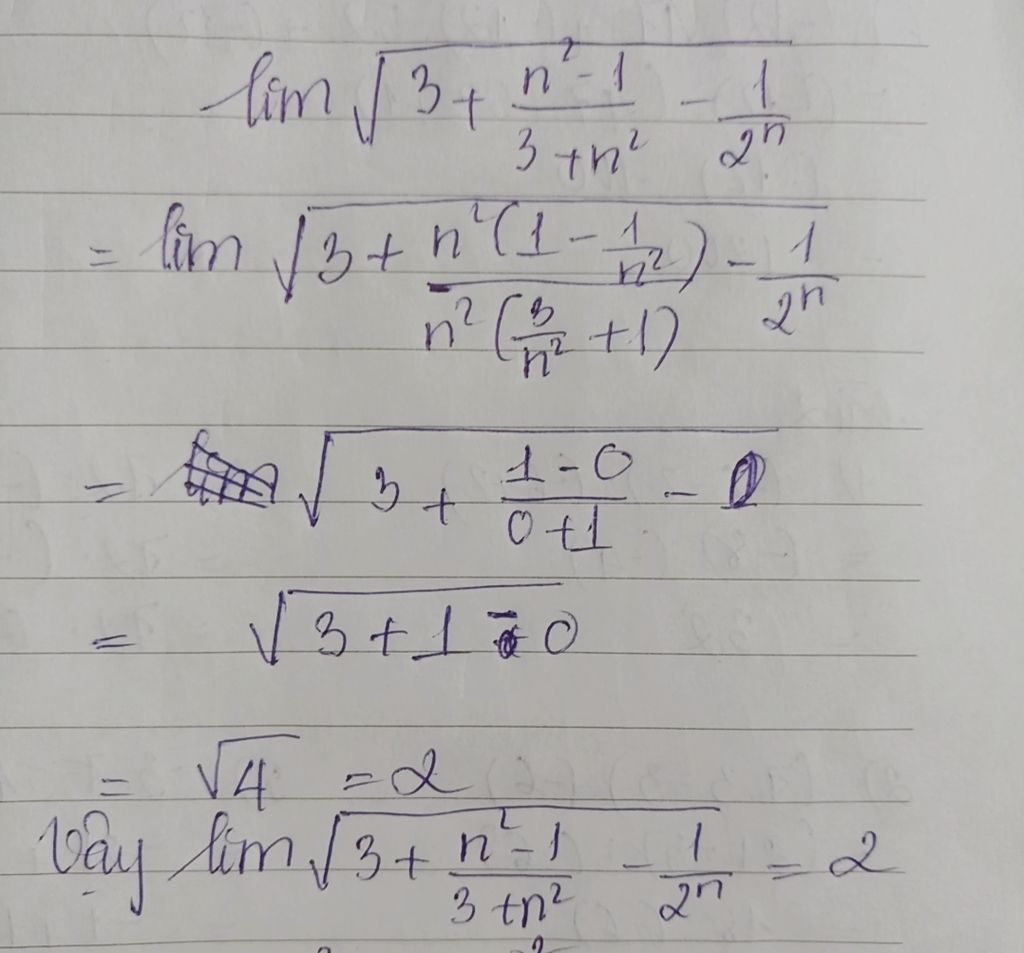 lim √(3 + (n² - 1)/(3 + n²) - 1/2ⁿ)
= lim √(3 + (n²(1 - 1/n²))/(n²(3/n² + 1)) - 1/2ⁿ)
= √(3 + (1 - 0)/(0 + 1) - 0)
= √(3 + 1 - 0)
= √4 = 2
Vậy lim √(3 + (n² - 1)/(3 + n²) - 1/2ⁿ) = 2